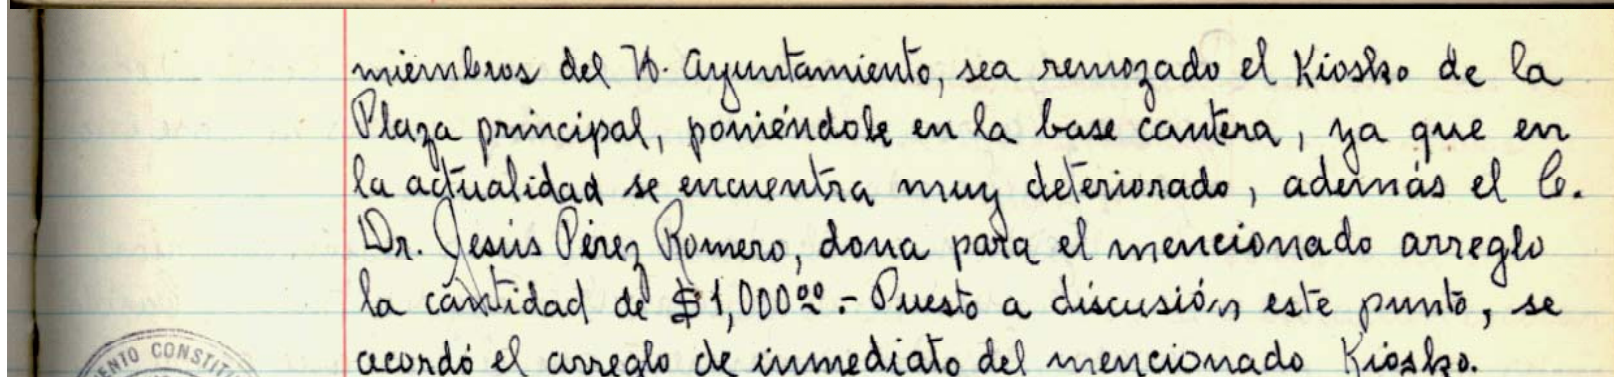 miembros del H. Ayuntamiento, sea remozado el Kiosko de la
Plaza principal, poniéndole en la base cantera, ya que en
la actualidad se encuentra muy deteriorado, además el C.
Dr. Jesús Pérez Romero, dona para el mencionado arreglo
la cantidad de $1,000.00.- Puesto a discusión este punto, se
acordó el arreglo de inmediato del mencionado Kiosko.
MIENTO CONSTIT